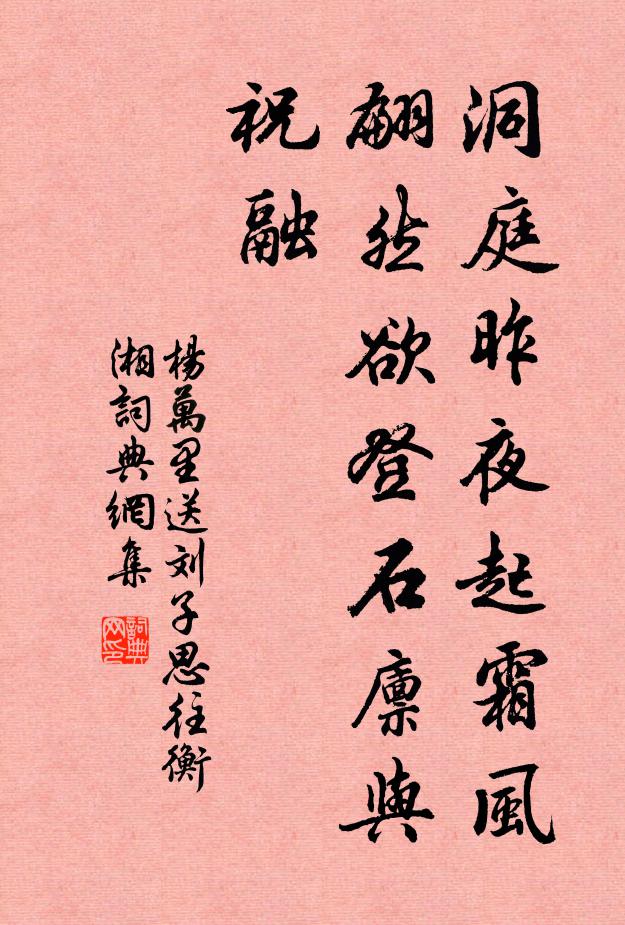 洞庭昨夜起霜風
翩然欲登石廩與
祝融
楊萬里送刘子思往衡
湘詞典網集
詞典
网印